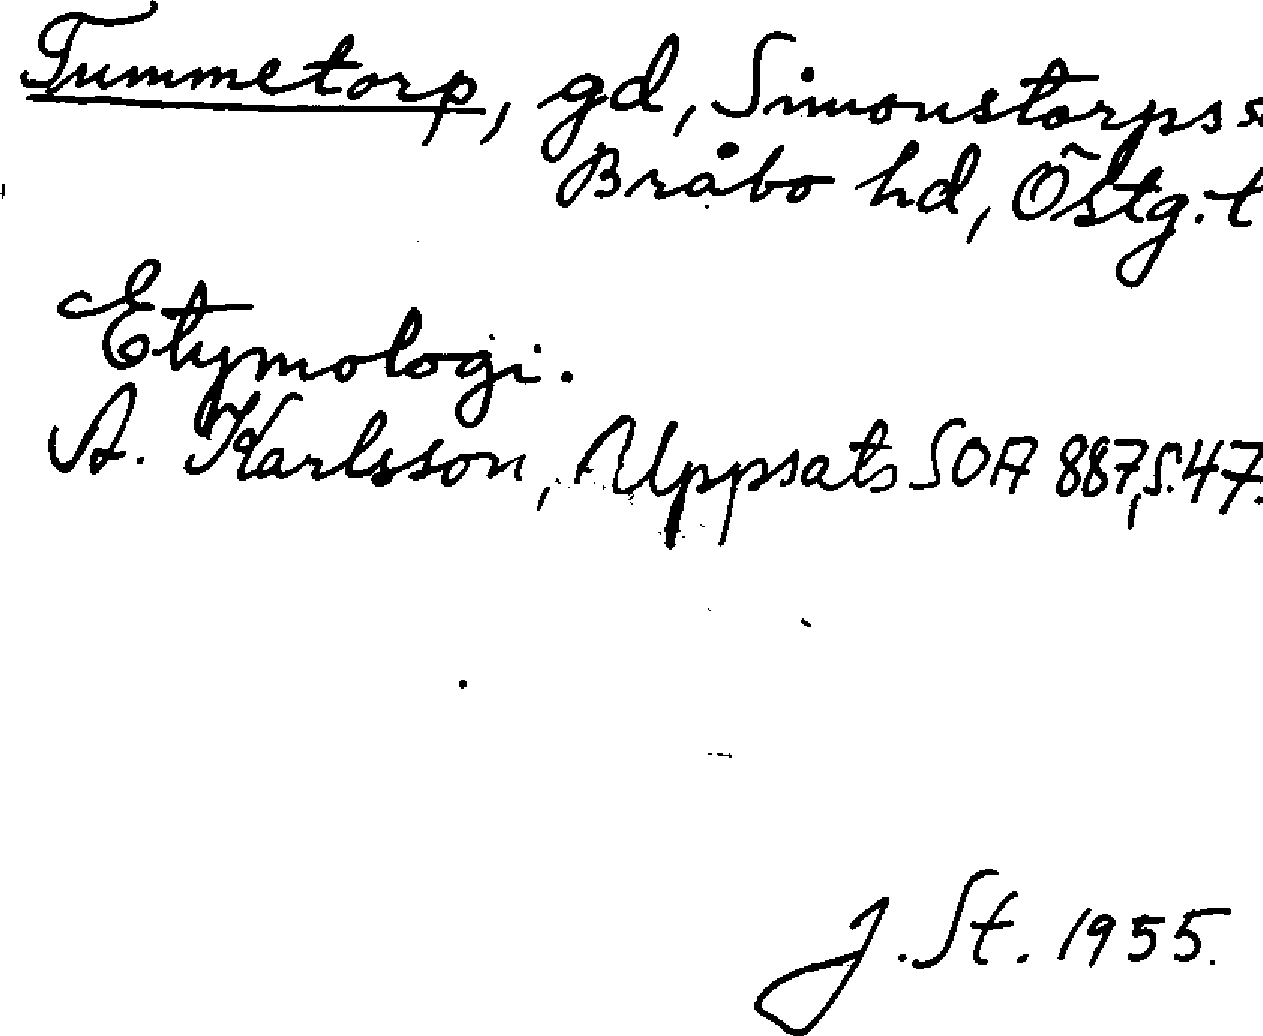 Tummetorp, gd, Simonstorps s
Bråbo hd, Östg.t
Etymologi.
A. Karlsson, Uppsats SOA 887, s. 47.
J. St. 1955.